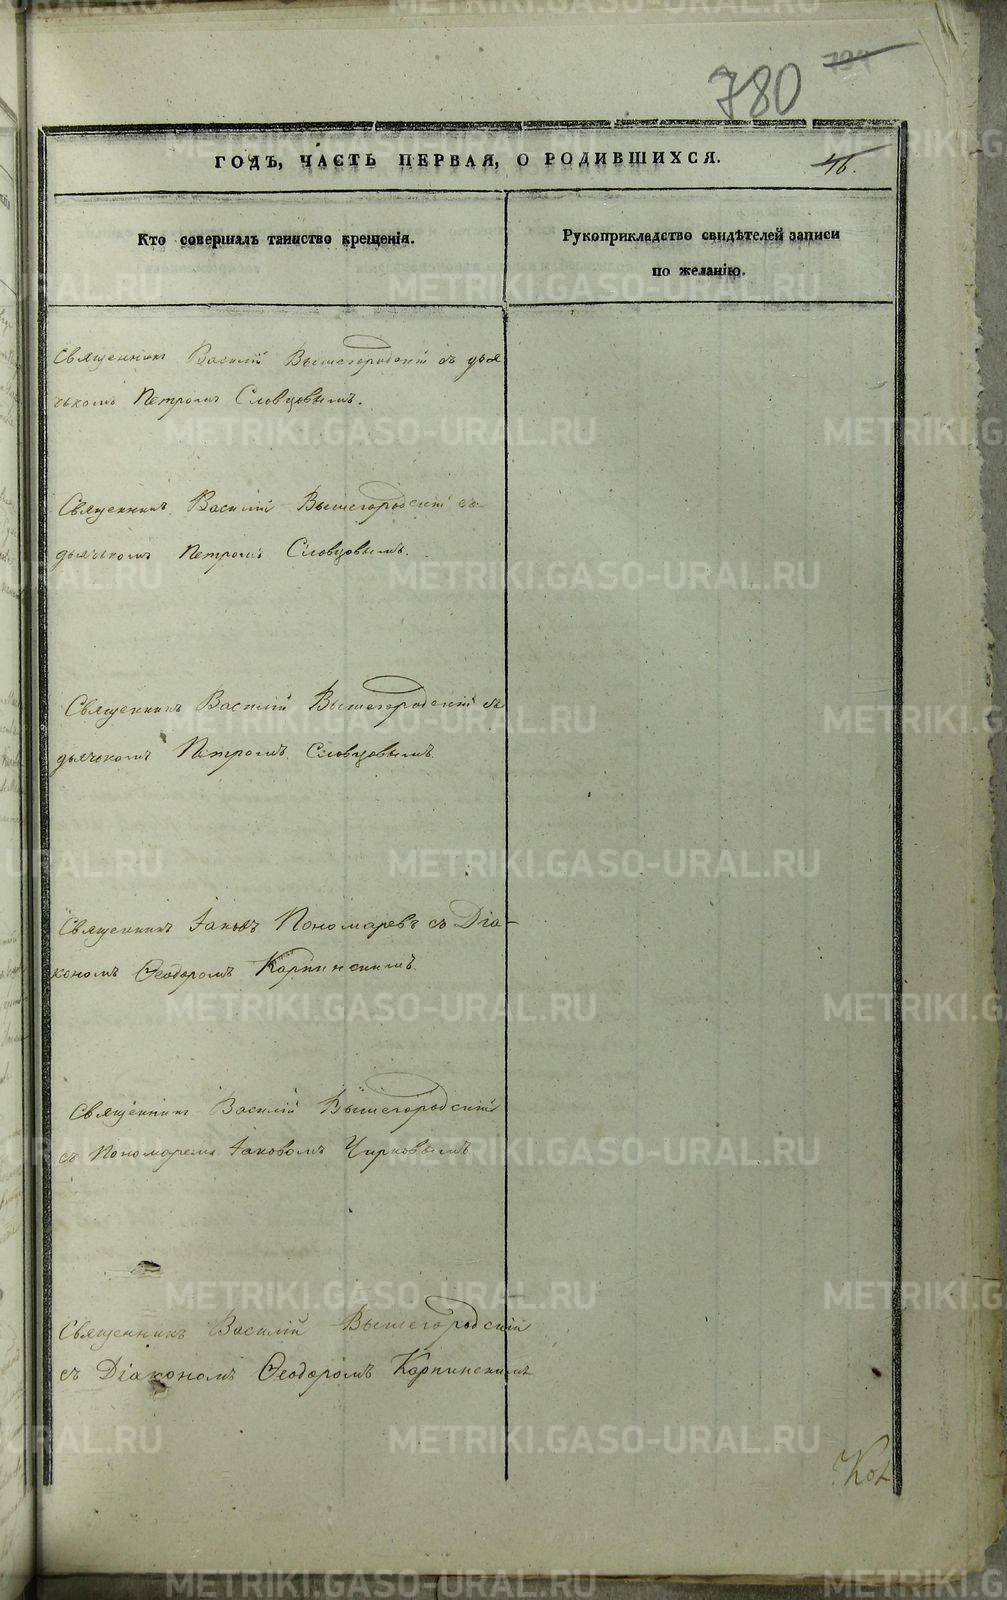 780
ГОДЪ, ЧАСТЬ ПЕРВАЯ, О РОДИВШИХСЯ.
46.
Кто совершалъ таинство крещенія.
Рукоприкладство свидѣтелей записи
по желанію.
Священникъ Василій Вышегородскій съ дья
чькомъ Петромъ Словцовымъ.
Священникъ Василій Вышегородскій съ
дьячькомъ Петромъ Словцовымъ.
Священникъ Василій Вышегородскій съ
дьячькомъ Петромъ Словцовымъ.
Священникъ Іаковъ Пономаревъ съ Діа-
кономъ Ѳеодоромъ Карпинскимъ.
Священникъ Василій Вышегородскій
съ Пономаремъ Іаковомъ Чирковымъ
Священникъ Василій Вышегородскій
съ Діакономъ Ѳеодоромъ Карпинскимъ
METRIKI.GASO-URAL.RU